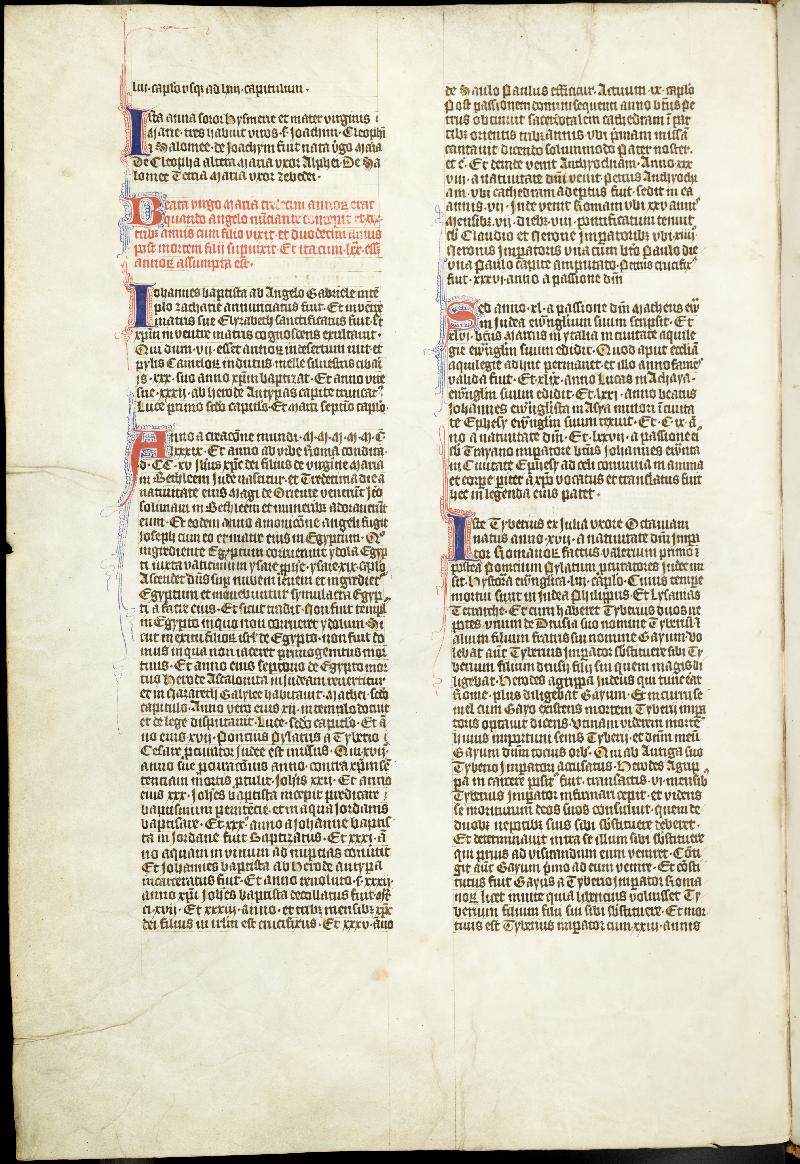 liii. capitlo usq; ad lxiii. capitulum.
Ista anna soror hysmerie et mater virginis
Marie tres habuit viros. s. Joachim. Cleophā
et Salomee. de Joachym fuit nata vgo Maria
De Cleopha altera Maria vxor Alphei. De Sa
lomee Tertia Maria vxor zebedei.
Beata virgo maria tredecim annoꝝ erat
quando angelo nūciante concepit et xxx
tribꝫ annis cum filio vixit. et duodecim annis
post mortem filii supuixit. Et ita cum lxx. esset
annoꝝ assumpta est.
Johannes baptista ab Angelo Gabriele inte
plo zacharie annunciatus fuit. Et in vētre
matris sue Elyzabeth sanctificatus fuit. Et
xpm in ventre matris cognoscens exultauit.
Qui dum. vii. esset annoꝝ in desertum iuit et
pylis Camelorꝫ indutus. melle siluestri cibat
is. xxx. suo anno xpm baptizat. Et anno vite
sue xxxii. ab herode Antypas capite truncat.
Luce primo scdo capitlo. Et Marci septio capło.
Anno a creacōne mundi. M. M. M. M. M. C.
lxxxix. Et anno ab vrbe Roma condita.
d. CC. xv Ihus xpc dei filius de virgine Maria
in Bethleem Jude nascitur. et Tredecima die a
natiuitate eius Magi de Oriente venerūt Ierō
solimam in Bethleem et muneribꝫ adorauerūt
eum. Et eodem anno a monicōne angeli fugit
Joseph cum eo et matre eius in Egyptum. Q
ingrediente Egyptum corruerunt ydola Egyp
ti iuxta vaticinium ysaye pphe. ysaye xix. capło
Ascendet dn̄s sup nubem leuem et ingrediet
Egyptum et mouebuntur symulacra Egyp
ti a facie eius. Et sicut tradit. Non fuit templ
in Egypto in quo non corrueret ydolum. Si
cut in exitu filioꝝ isrl de Egypto. non fuit do
mus in qua non iaceret primogenitus mor
tuus. Et anno eius septimo de Egypto mor
tuo herode Ascalonita in Judeam reuertitur
et in Nazareth Galylee habitauit. Mathei. scdo
capitulo. Anno vero eius xii. in templo docuit
et de lege disputauit. Luce. scdo capitlo. Et ā
no eius xvii. Pontius Pylatus a Tyberio
Cesare pcurator Judee est missus. Qui xvii.
anno sue pcuracōnis anno. contra xpm sē
tenciam mortis ptulit. Johis xxii. Et anno
eius xxx. Johēs baptista incepit predicare
baptismum penitētie. et in aqua Jordanis
baptisare. Et xxx. anno a Johanne baptis
ta in Jordane fuit Baptizatus. Et xxxi. ā
no aquam in vinum ad nuptias conuertit
Et Johannes baptista ab herode antypa
incarceratus fuit. Et anno reuoluto. s. xxxii.
anno xpi Johēs baptista decollatus fuit.
ci. xvii. Et xxxiii. anno. et tribꝫ mensibꝫ xpc
dei filius in irlm est crucifixus. Et xxxv. anno
de Saulo Paulus efficitur. Actuum. ix. capło
Post passionem domini sequenti anno btūs pe
trus obtinuit sacerdotalem cathedram ī par
tibꝫ orientis tribꝫ annis. vbi primam missā
cantauit dicendo solummodo Pater noster.
et c̄. Et deinde venit Anthyochiam. Anno. xxx
viii. a natiuitate dn̄i venit petrus Anthyochi
am. vbi cathedram adeptus fuit. sedit in ea
annis. vii. Inde venit Romam vbi xxv annis
Mensibꝫ. vii. diebꝫ. viii. pontificatum tenuit
sb Claudio et Nerone Imperatoribꝫ vbi. xiiii.
Neronis imperatoris vna cum bto Paulo die
vna Paulo capite amputato. Petrus crucifix
fuit. xxxvi anno a passione dn̄i
Sed anno. xl. a passione dn̄i Matheus ew
in Judea ewglium suum scripsit. Et
xlvi. btūs Marcus in ytalia in ciuitate aquile
gie ewglm suum edidit. Quod aput eccliā
aquilegie adhuc permanet. et illo anno fames
valida fuit. Et xlix. anno Lucas in Achaya.
ewglium suum edidit. Et. lxxi. anno beatus
Johannes ewglista in Asya minori ī ciuita
te Ephesy ewglium suum texuit. Et C. ix. ā
no a natiuitate dn̄i. Et. lxxvii. a passione ei
sb Trayano imperatore btūs Johannes ewnta
in Ciuitate Ephesy ad celi conuiuia in anima
et corpe piter a xpo vocatus et translatus fuit
hec in legenda eius patet.
Iste Tyberius ex Julia vxore Octauiani
natus anno. xvii. a natiuitate dn̄i impa
tor Romanoꝝ factus valerium primo ī
postea Poncium Pylatum pcuratores iudee mi
sit. hystoria ewnglica. liii. capło. Cuius tempe
mortui sunt in Judea Philippus. Et Lysanias
Tetrarche. Et cum haberet Tyberius duos ne
potes. vnum de Drusia suo nomine Tyberiū
alium filium fratris sui nomine Gayum. vo
lebat aūt Tyberius imparor sbstituere sibi Ty
berium filium drusy filij sui quem magis di
ligebat. herodes agrippa iudeus qui tunc erat
Rome. plus diligebat Gayum. Et in curru se
mel cum Gayo existens mortem Tyberij impa
toris optauit dicens. Vtinam viderem mortē
huius importuni senis Tyberij. et dn̄m meū
Gayum dn̄m tocius orbꝭ. Qui ab Auriga suo
Tyberio Impatori accusatus. herodes Agrip
pa in carcere posit fuit. transactis. vi. mensibꝫ
Tyberius imperator infirmari cepit. et videns
se moriturum deos suos consuluit. quem de
duobꝫ nepotibꝫ suis sibi sbstituere deberet.
Et determinauit intra se illum sibi sbstituere
qui prius ad visitandum eum veniret. Cōti
git aūt Gayum pmo ad eum venire. Et cōsti
tutus fuit Gayus a Tyberio imperator Roma
noꝝ licet inuite quia libencius voluisset Ty
berium filium filii sui sibi sbstituere. Et mor
tuus est Tyberius imperator cum. xxiii. annis